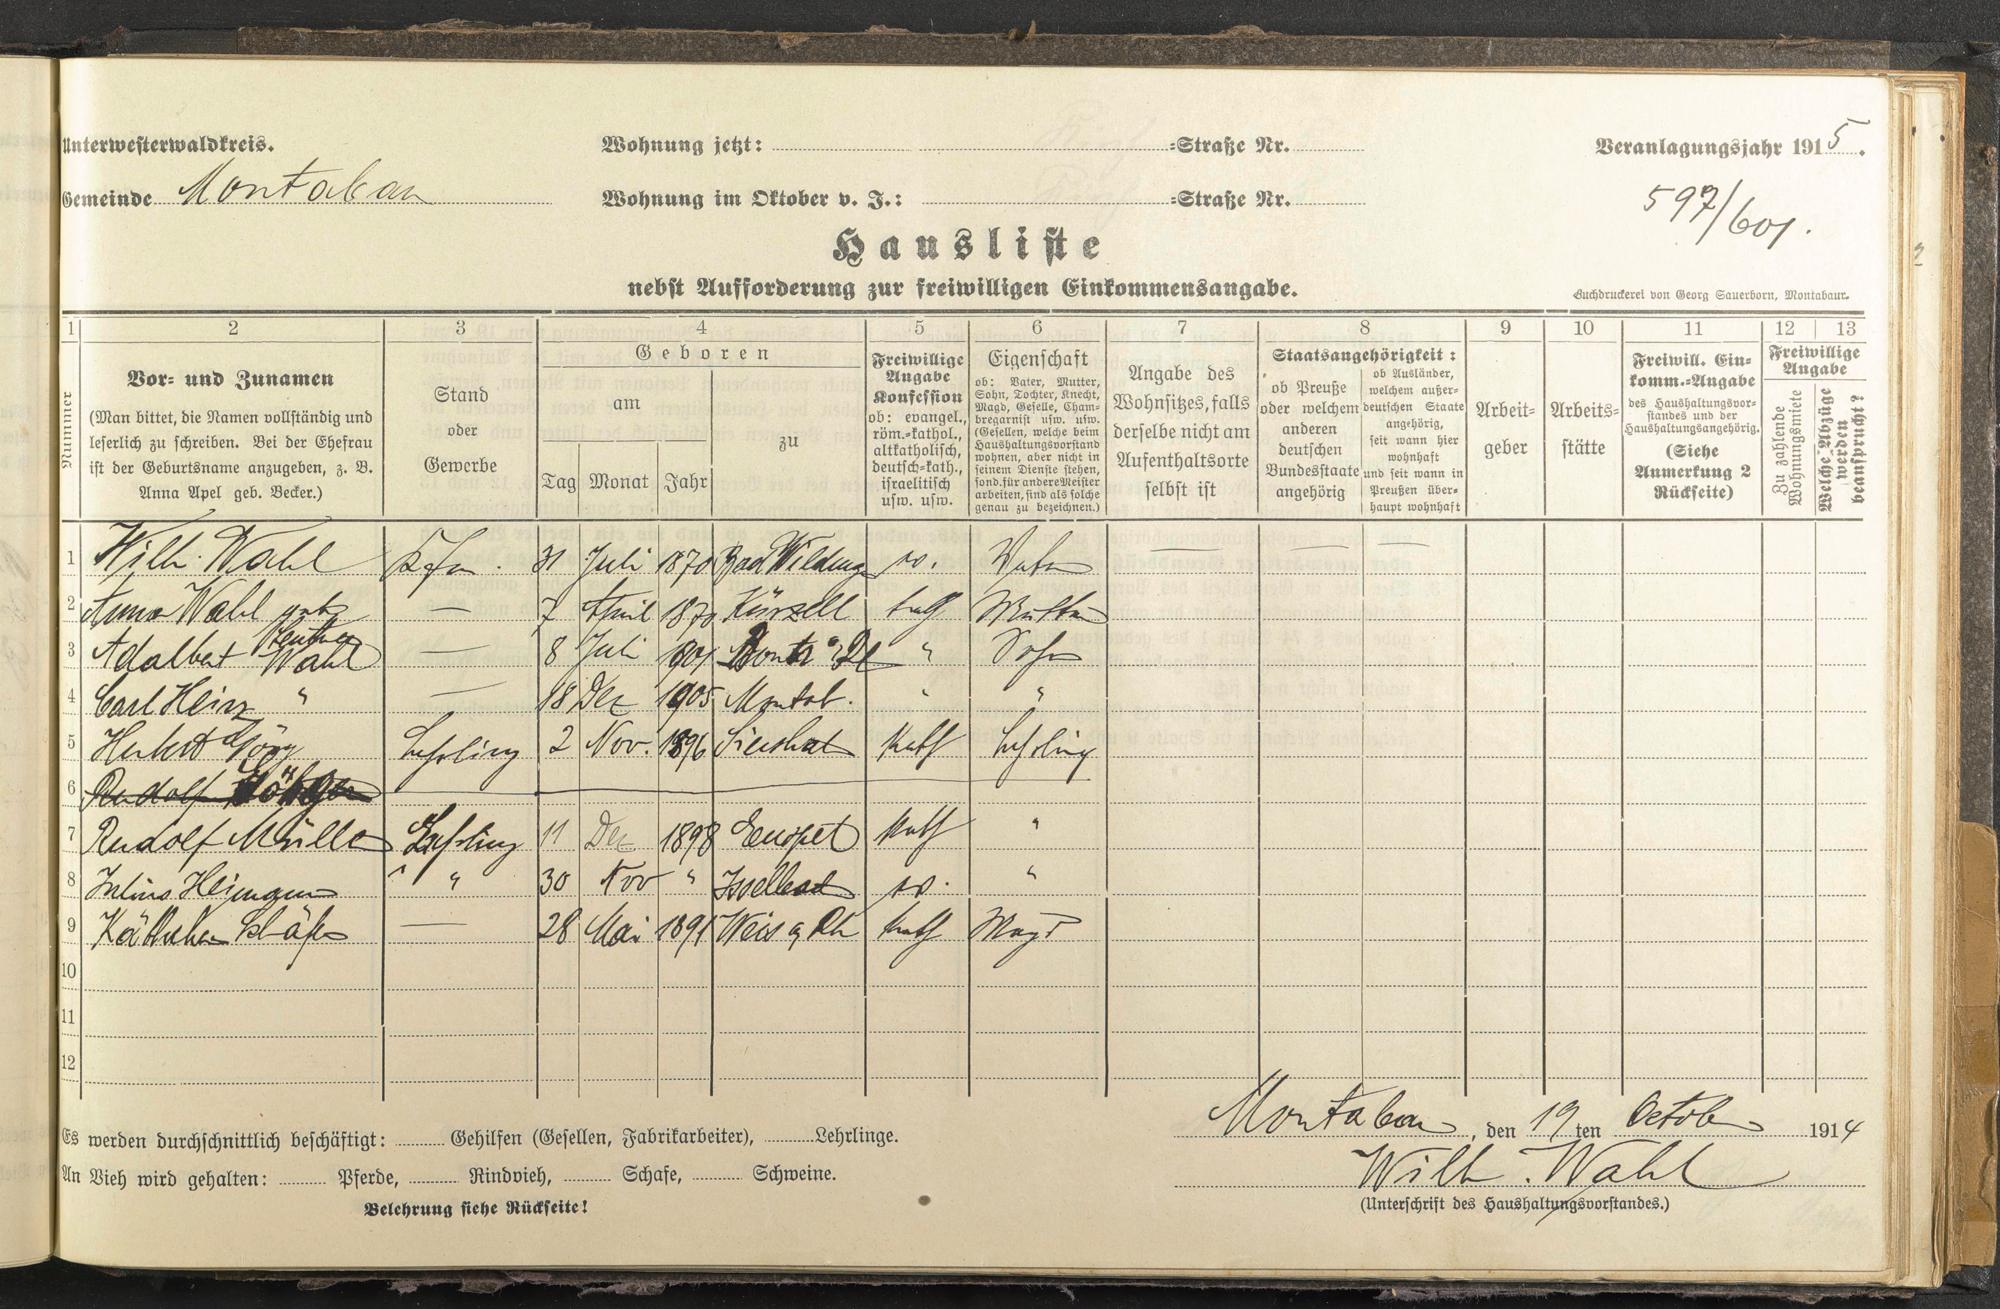 Unterwesterwaldkreis.
Gemeinde Montabaur
Wohnung jetzt: -Straße Nr.
Wohnung im Oktober v. J.: -Straße Nr.
Veranlagungsjahr 1915.
597/601.
Hausliste
nebst Aufforderung zur freiwilligen Einkommensangabe.
Buchdruckerei von Georg Sauerborn, Montabaur.
1 2 3 4 5 6 7 8 9 10 11 12 13
Nummer
Vor- und Zunamen
(Man bittet, die Namen vollständig und
leserlich zu schreiben. Bei der Ehefrau
ist der Geburtsname anzugeben, z. B.
Anna Apel geb. Becker.)
Stand
oder
Gewerbe
Geboren
am
Tag Monat Jahr
zu
Freiwillige
Angabe
Konfession
ob: evangel.,
röm.-kathol.,
altkatholisch,
deutsch-kath.,
israelitisch
usw. usw.
Eigenschaft
ob: Vater, Mutter,
Sohn, Tochter, Knecht,
Magd, Geselle, Cham-
bregarnist usw. usw.
(Gesellen, welche beim
Haushaltungsvorstand
wohnen, aber nicht in
seinem Dienste stehen,
sond. für andere Meister
arbeiten, sind als solche
genau zu bezeichnen.)
Angabe des
Wohnsitzes, falls
derselbe nicht am
Aufenthaltsorte
selbst ist
Staatsangehörigkeit:
ob Preuße
oder welchem
anderen
deutschen
Bundesstaate
angehörig
ob Ausländer,
welchem außer-
deutschen Staate
angehörig,
seit wann hier
wohnhaft
und seit wann in
Preußen über-
haupt wohnhaft
Arbeit-
geber
Arbeits-
stätte
Freiwill. Ein-
komm.-Angabe
des Haushaltungsvor-
standes und der
Haushaltungsangehörig.
(Siehe
Anmerkung 2
Rückseite)
Freiwillige
Angabe
Zu zahlende
Wohnungsmiete
Welche Abzüge
werden
gewünscht?
1 Wilh. Wahl 31 Juli 1870 Bad Wildungen ev. Vater
2 Anna Wahl geb. 7 April 1870 Kürzell kath Mutter
3 Adalbert Wahl — 8 Juli 1901 " Sohn
4 Carl Heinz " — 18 Dez 1905 Montab. " "
5 Herbert Görg Lehrling 2 Nov. 1896 kath Lehrling
6 Rudolf
7 Rudolf Müller Lehrling 11 Dez 1898 kath "
8 Julius Heimann " 30 Nov " ev. "
9 Käthchen Schäfer — 28 Mai 1891 Weis a Rh kath Magd
10
11
12
Es werden durchschnittlich beschäftigt: Gehilfen (Gesellen, Fabrikarbeiter), Lehrlinge.
An Vieh wird gehalten: Pferde, Rindvieh, Schafe, Schweine.
Belehrung siehe Rückseite!
Montabaur, den 19ten October 1914
Wilh. Wahl
(Unterschrift des Haushaltungsvorstandes.)